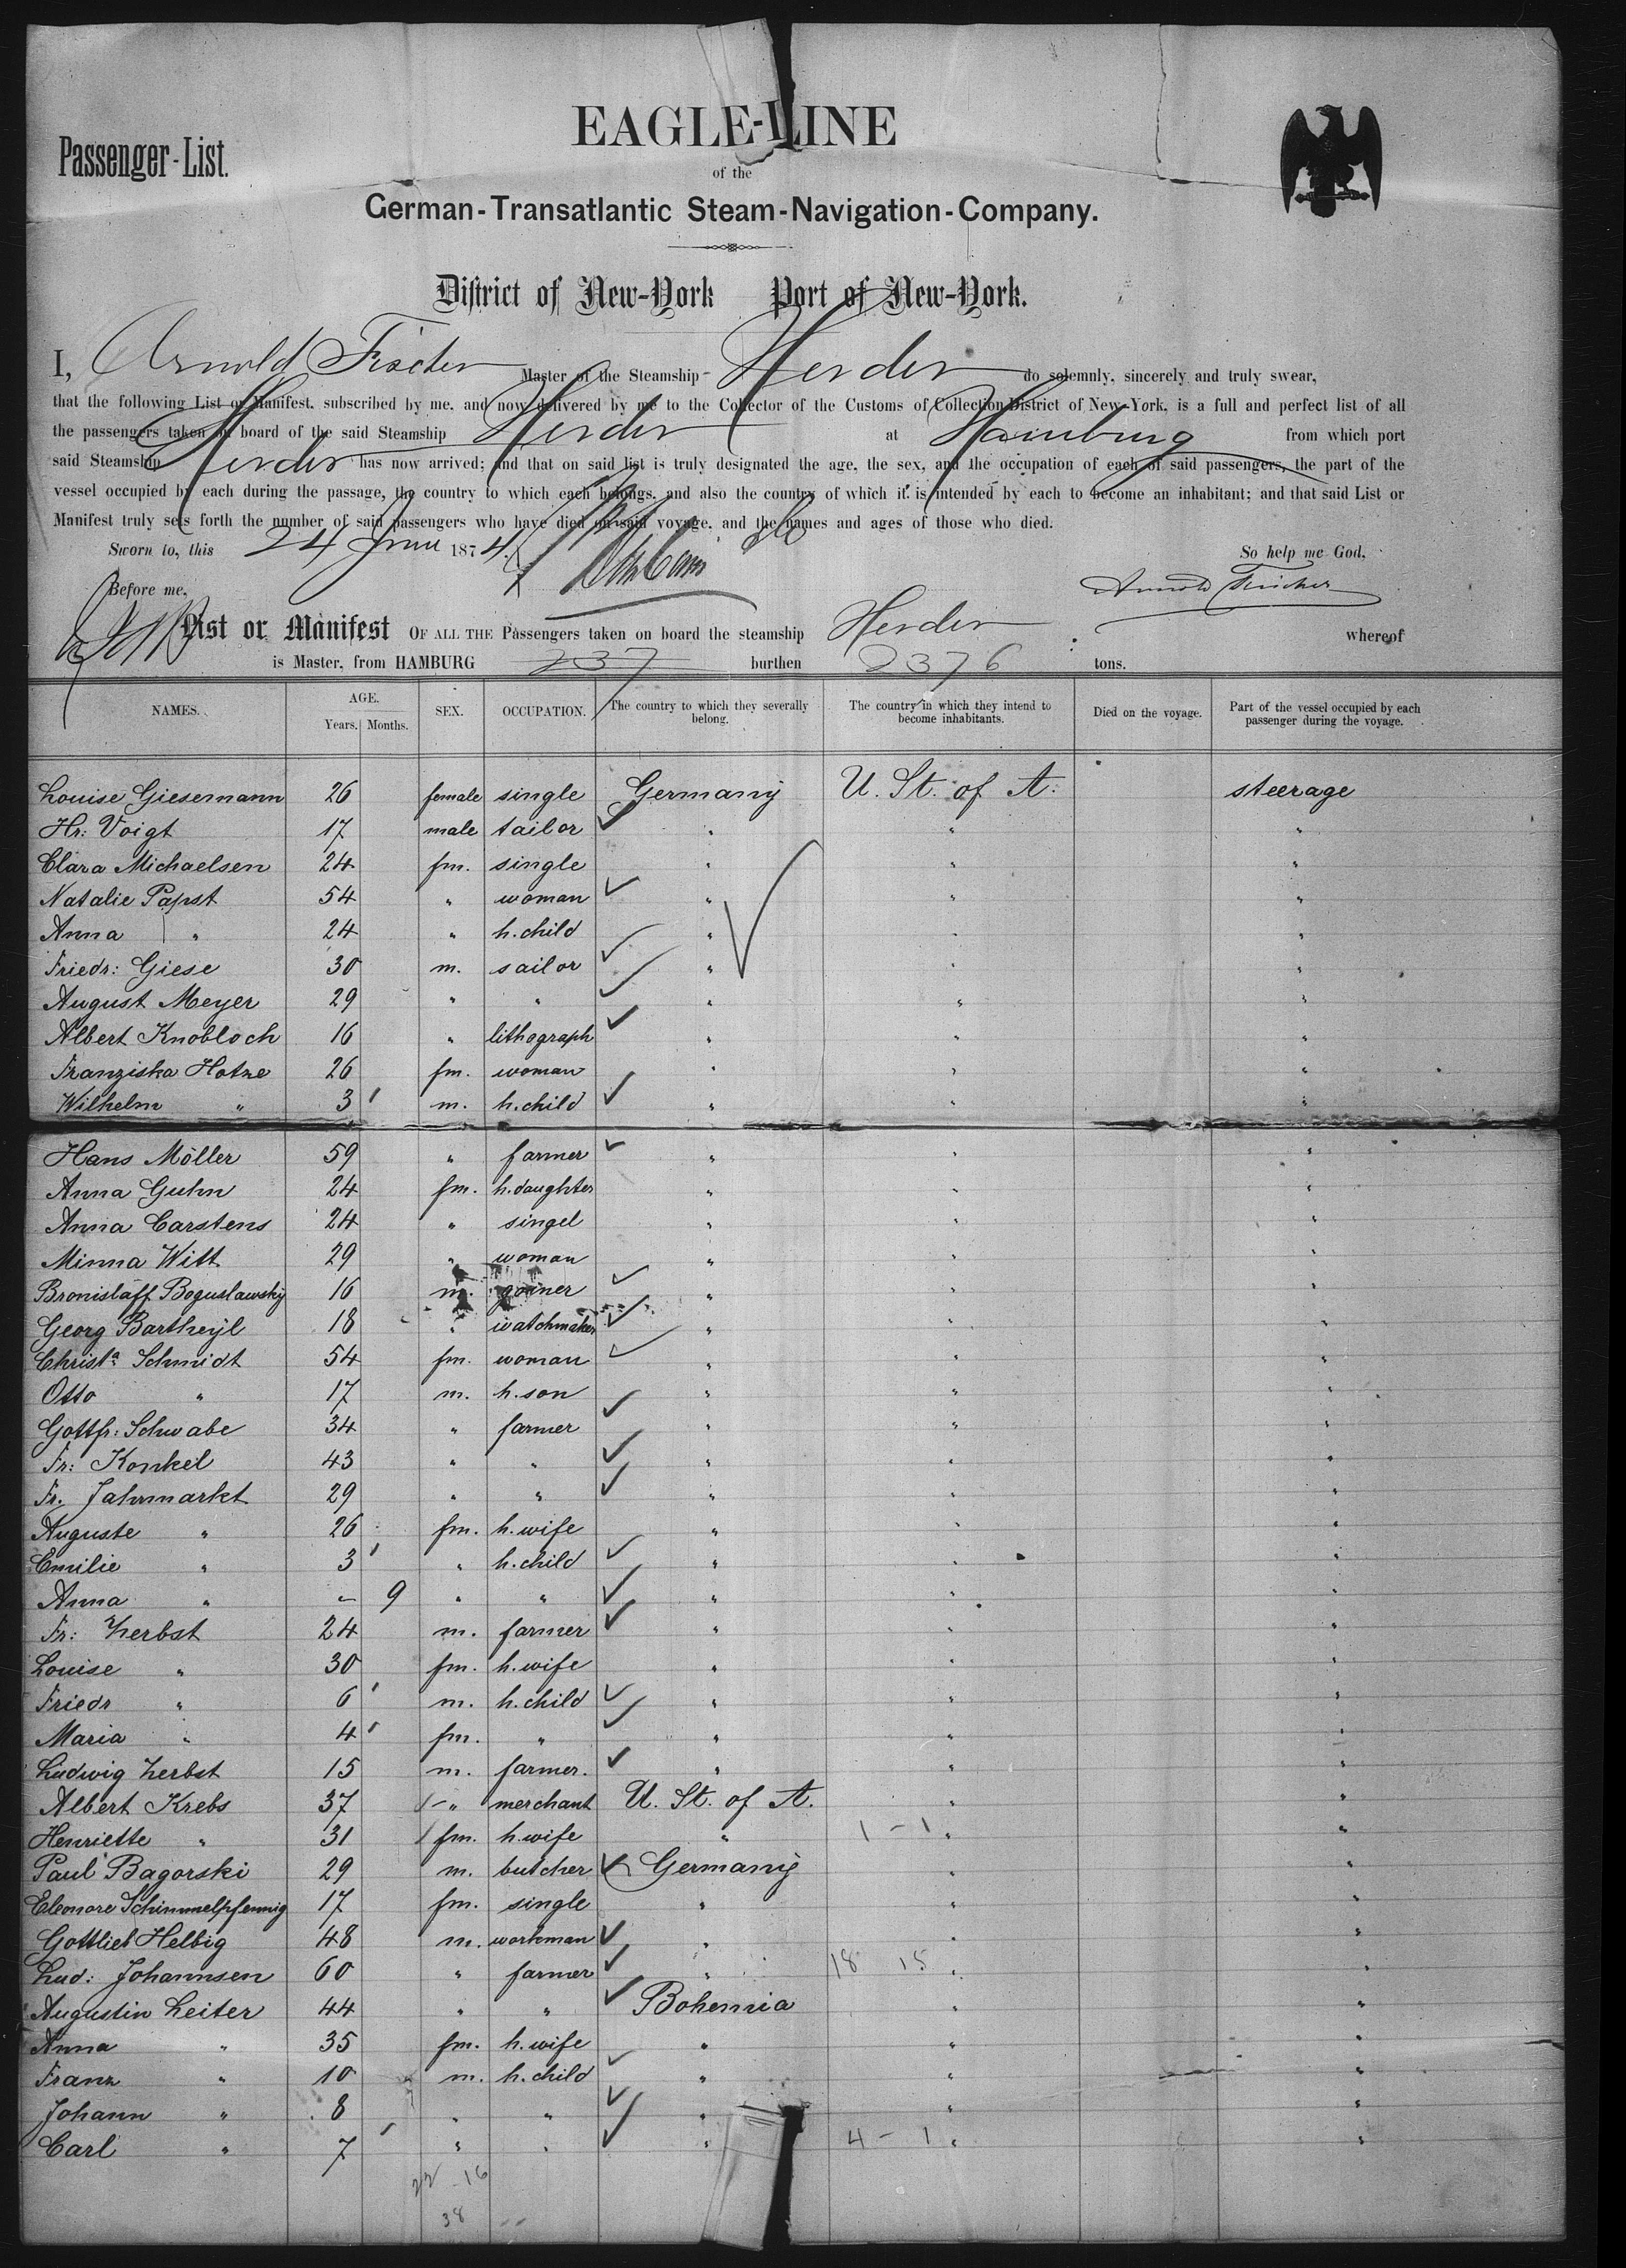 Passenger-List.
EAGLE-LINE
of the
German-Transatlantic Steam-Navigation-Company.
District of New-York Port of New-York.
I, Arnold Fischer Master of the Steamship Herder do solemnly, sincerely and truly swear,
that the following List or Manifest, subscribed by me, and now delivered by me to the Collector of the Customs of Collection District of New-York, is a full and perfect list of all
the passengers taken on board of the said Steamship Herder at Hamburg from which port
said Steamship Herder has now arrived; and that on said list is truly designated the age, the sex, and the occupation of each of said passengers, the part of the
vessel occupied by each during the passage, the country to which each belongs, and also the country of which it is intended by each to become an inhabitant; and that said List or
Manifest truly sets forth the number of said passengers who have died on said voyage, and the names and ages of those who died.
Sworn to, this 24 June 1874. So help me God,
Before me, Arnold Fischer
List or Manifest OF ALL THE Passengers taken on board the steamship Herder whereof
is Master, from HAMBURG 237 burthen 2376 tons.
NAMES. AGE. Years. Months. SEX. OCCUPATION. The country to which they severally belong. The country in which they intend to become inhabitants. Died on the voyage. Part of the vessel occupied by each passenger during the voyage.
Louise Giesemann 26 female single Germany U. St. of A. steerage
Hr: Voigt 17 male tailor " " "
Clara Michaelsen 24 fm. single " " "
Natalie Papst 54 " woman " " "
Anna " 24 " h. child " " "
Friedr: Giese 30 m. sailor " " "
August Meyer 29 " " " " "
Albert Knobloch 16 " lithograph " " "
Franziska Hotze 26 fm. woman " " "
Wilhelm " 3 m. h. child " " "
Hans Möller 59 " farmer " " "
Anna Guhn 24 fm. h. daughter " " "
Anna Carstens 24 " singel " " "
Minna Witt 29 " woman " " "
Bronislaff Boguslawsky 16 m. goiner " " "
Georg Bartheyl 18 " watchmaker " " "
Christa Schmidt 54 fm. woman " " "
Otto " 17 m. h. son " " "
Gottfr: Schwabe 34 " farmer " " "
Fr: Konkel 43 " " " " "
Fr. Jahrmarkt 29 " " " " "
Auguste " 26 fm. h. wife " " "
Emilie " 3 " h. child " " "
Anna " – 9 " " " " "
Fr: Zerbst 24 m. farmer " " "
Louise " 30 fm. h. wife " " "
Friedr " 6 m. h. child " " "
Maria " 4 fm. " " " "
Ludwig Zerbst 15 m. farmer. " " "
Albert Krebs 37 " merchant U. St. of A. " "
Henriette " 31 fm. h. wife " 1 – 1 " "
Paul Bagorski 29 m. butcher Germany " "
Eleonore Schimmelpfennig 17 fm. single " " "
Gottlieb Helbig 48 m. workman " " "
Lud: Johannsen 60 " farmer " 18 15 " "
Augustin Leiter 44 " " Bohemia " "
Anna " 35 fm. h. wife " " "
Franz " 10 m. h. child " " "
Johann " 8 " " " " "
Carl " 7 " " " 4 – 1 " "
22 – 16
38